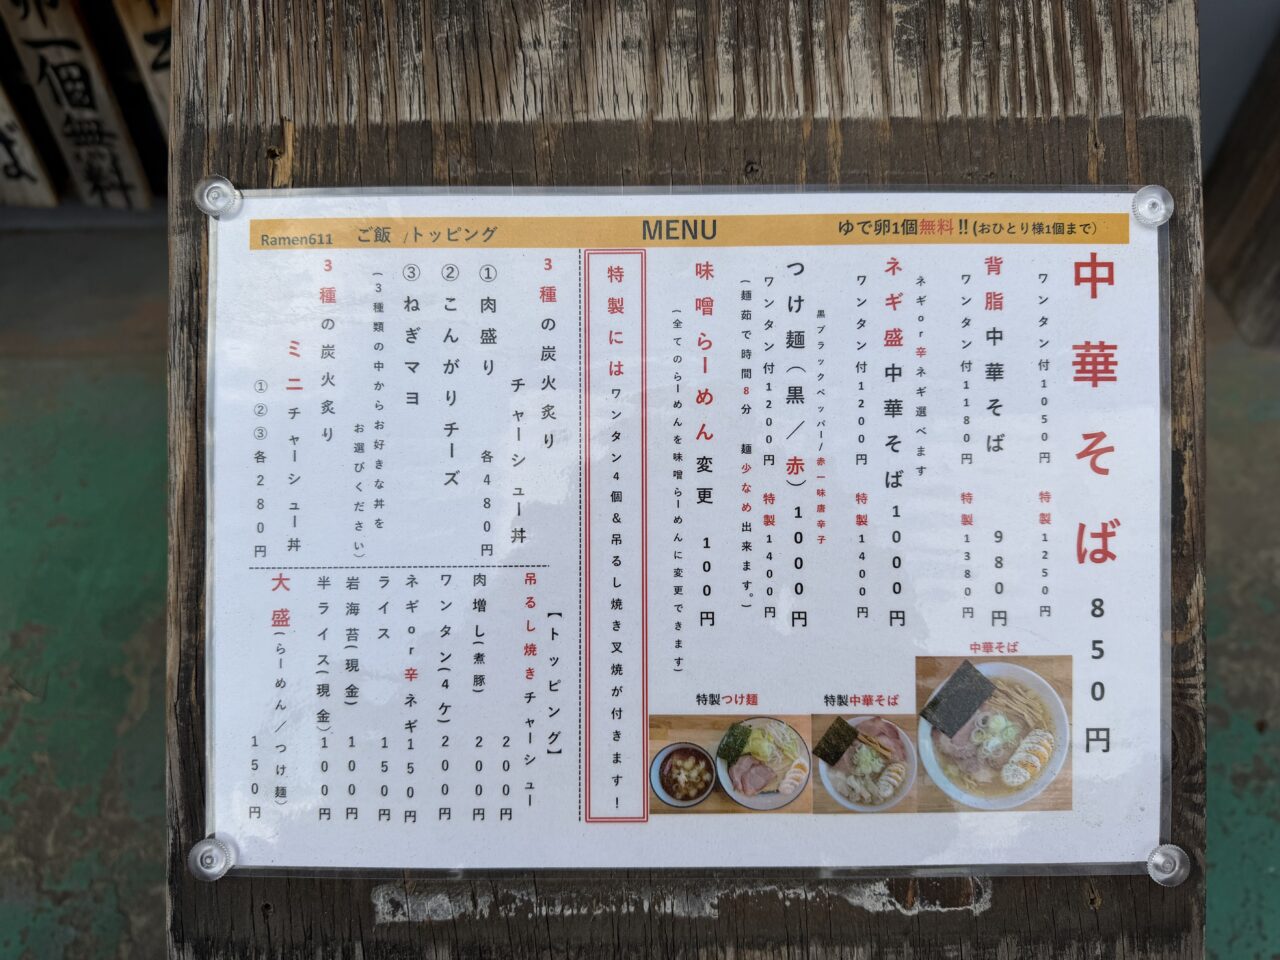 Ramen611 ご飯 /トッピング MENU ゆで卵1個無料!!(おひとり様1個まで)
中華そば 850円
ワンタン付1050円 特製1250円
背脂中華そば 980円
ワンタン付1180円 特製1380円
ネギor辛ネギ選べます
ネギ盛中華そば1000円
ワンタン付1200円 特製1400円
黒ブラックペッパー/赤一味唐辛子
つけ麺(黒/赤)1000円
ワンタン付1200円 特製1400円
(麺茹で時間8分 麺少なめ出来ます。)
味噌らーめん変更 100円
(全てのらーめんを味噌らーめんに変更できます)
中華そば
特製中華そば
特製つけ麺
特製にはワンタン4個&吊るし焼き叉焼が付きます!
3種の炭火炙り
チャーシュー丼
①肉盛り 各480円
②こんがりチーズ
③ねぎマヨ
(3種類の中からお好きな丼を
お選びください)
3種の炭火炙り
ミニチャーシュー丼
①②③各280円
【トッピング】
吊るし焼きチャーシュー
200円
肉増し(煮豚) 200円
ワンタン(4ケ) 200円
ネギor辛ネギ150円
ライス 150円
岩海苔(現金) 100円
半ライス(現金) 100円
大盛(らーめん/つけ麺)
150円
一個無料
ば